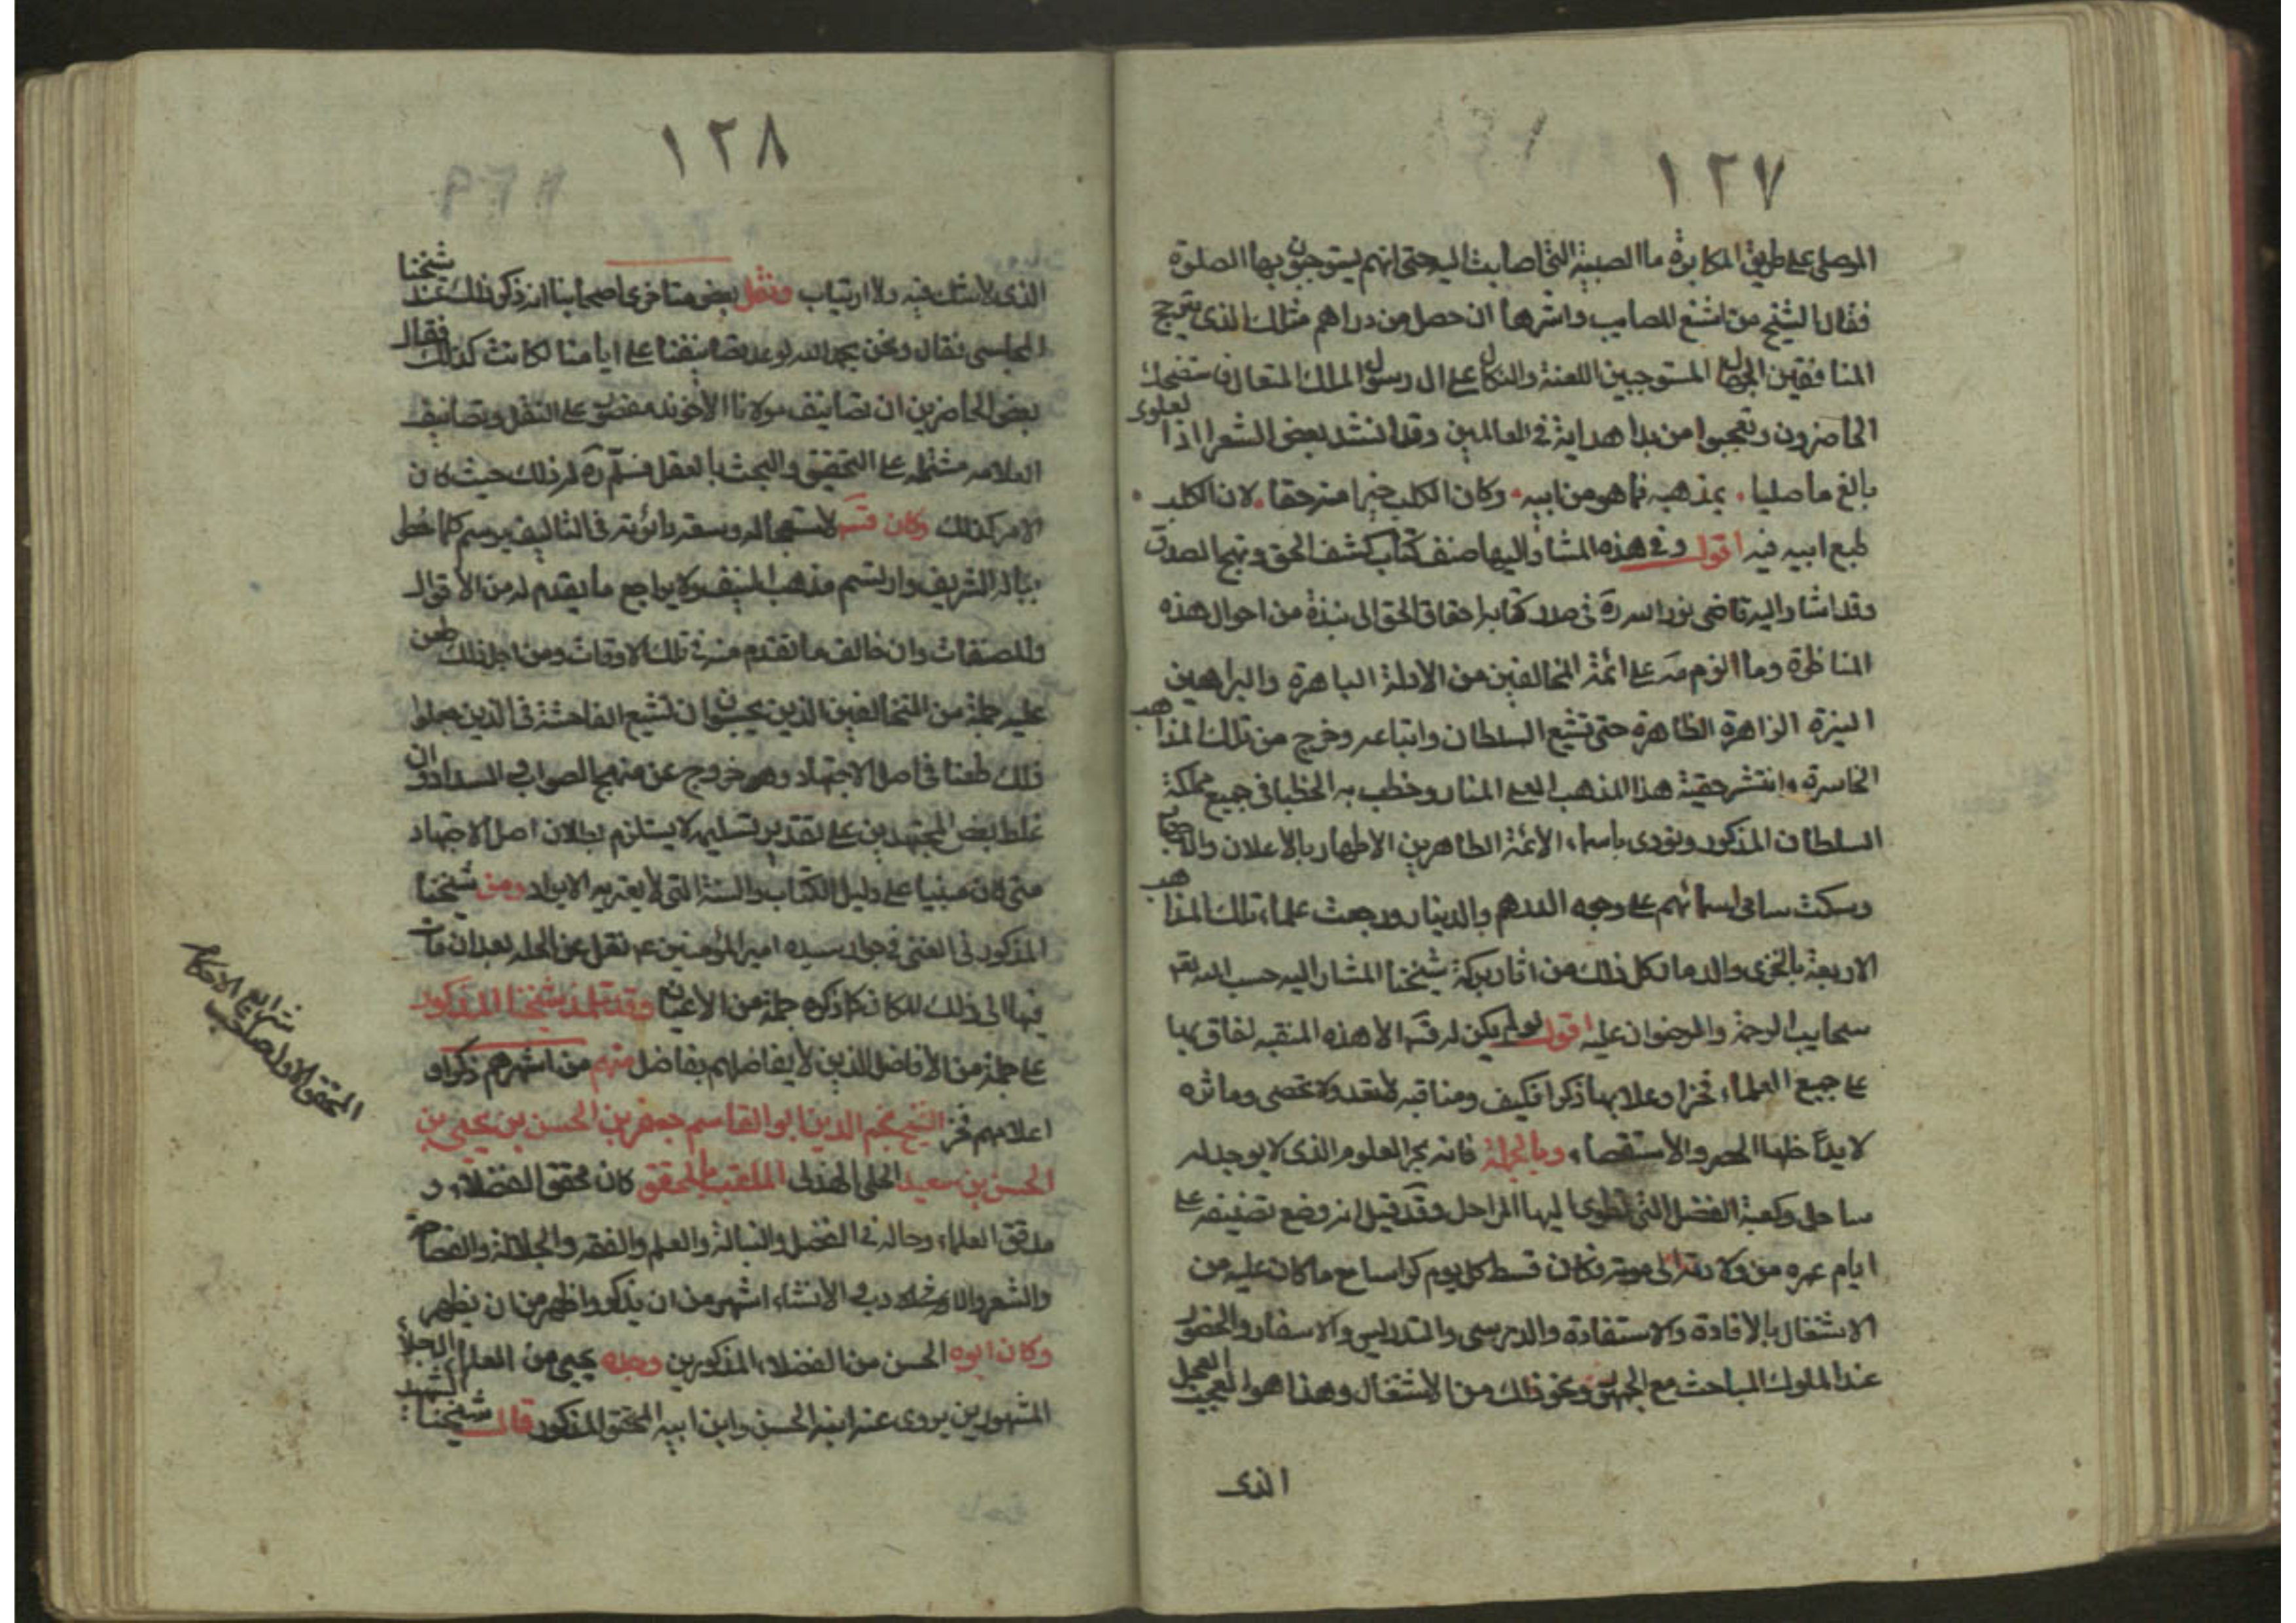 ١٢٧
الموصلى على طريق المكابرة ما المصيبة التى اصابت اليه حتى انهم يستوجبون بها الصلوة
فقال الشيخ من اشنع المصايب واشرها ان حصل من دراهم مثلك الذى يرجح
المنافقين الجهال المستوجبين اللعنة والنكال على ال رسول الملك المتعال فاستضحك
الحاضرون وتعجبوا من بداهته فى العالمين وقد انشد بعض الشعرا اذا العلوى
بالغ ناصبيا . بمذهبه فما هو من ابيه . وكان الكلب خيرا منه حقا . لان الكلب .
طبع ابيه فيه اقول وفى هذه المشار اليها صنف كتاب كشف الحق ونهج الصدق
وقد اشار اليه قاضى نور الله ره فى صدر كتابه احقاق الحق الى نبذة من احوال هذه
المناظرة وما الزم به على ائمة المخالفين من الادلة الباهرة والبراهين
النيرة الزاهرة الظاهرة حتى تشيع السلطان واتباعه وخرج من تلك المذاهب
الخاسرة وانتشر حقية هذا المذهب العلى المنار وخطب به الخطبا فى جميع مملكة
السلطان المذكور ونودى باسماء الأئمة الطاهرين الاطهار بالأعلان والاجهار
وسكت سامى اسمائهم على وجوه الدرهم والدينار ورجعت علماء تلك المذاهب
الاربعة بالخزى والدمار كل ذلك من اثار بركة شيخنا المشار اليه حسب الله تعم
سحايب الرحمة والرضوان عليه اقول لو لم يكن له قده الا هذه المنقبه لفاق بها
على جميع العلماء فخرا وعلا بها ذكرا فكيف ومناقبه لا تعد ولا تحصى وماثره
لا يداخلها الحصر والأستقصاء وبالجملة فانه بحر العلوم الذى لا يوجد له
ساحل وكعبة الفضل التى تطوى اليها المراحل وقد قيل انه وضع تصنيفه على
ايام عمره من ولادته الى موته فكان قسط كل يوم كراسا مع ما كان عليه من
الاشتغال بالأفادة والاستفادة والدرس والتدريس والاسفار والحضور
عند الملوك المباحث مع الجمهور ونحو ذلك من الاشتغال وهذا هو العجب العجيل
الذى
١٢٨
الذى لا شك فيه ولا ارتياب ونقل بعض متاخرى اصحابنا انه ذكر ذلك عند شيخنا
المجلسى فقال ونحن بحمد الله لو عد تصانيفنا على ايامنا لكانت كذلك فقال
بعض الحاضرين ان تصانيف مولانا الأخوند مقصورة على النقل وتصانيف
العلامه مشتمله على التحقيق والبحث بالعقل فسلّم ره له ذلك حيث كان
الامر كذلك وكان قده لاستعجاله وسعة دائرته فى التاليف يرسم كلما خطر
بباله الشريف وارتسم مذهبه المنيف ولا يراجع ما تقدم له من الأقوال
والمصنفات وان خالف ما تقدم منه فى تلك الاوقات ومن اجل ذلك طعن
عليه جملة من المخالفين الذين يحبون ان تشيع الفاحشة فى الذين جعلوا
ذلك طعنا فى اصل الاجتهاد وهو خروج عن منهج الصواب والسداد وان
غلط بعض المجتهدين على تقدير تسليمه لا يستلزم بطلان اصل الاجتهاد
متى كان مبنيا على دليل الكتاب والسنة التى لا يعتريه الايراد ودفن شيخنا
المذكور فى الغرى فى جوار سيده امير المؤمنين ع نقل عن الحله بعد ان مات
فيها الى ذلك المكان كما ذكره جملة من الأعيان وقد تلمذ شيخنا المذكور
على جملة من الأفاضل الذين لا يفاضلهم بفاضل منهم من اشهرهم ذكرا و
اعلاهم فخر الشيخ نجم الدين ابو القاسم جعفر بن الحسن بن يحيى بن
الحسن بن سعيد الحلى الهذلى الملقب بالمحقق كان محقق الفضلاء و
مدقق العلماء وحاله فى الفضل والنبالة والعلم والفقه والجلالة والفصاحة
والشعر والادب والانشاء اشهر من ان يذكر واظهر من ان يظهر
وكان ابوه الحسن من الفضلاء المذكورين وجده يحيى من العلماء الاجلاء
المشهورين يروى عنه ابنه الحسن وابن ابيه المحقق المذكور قال شيخنا الشهيد
المحقق الاول صاحب
شرايع الاحكام